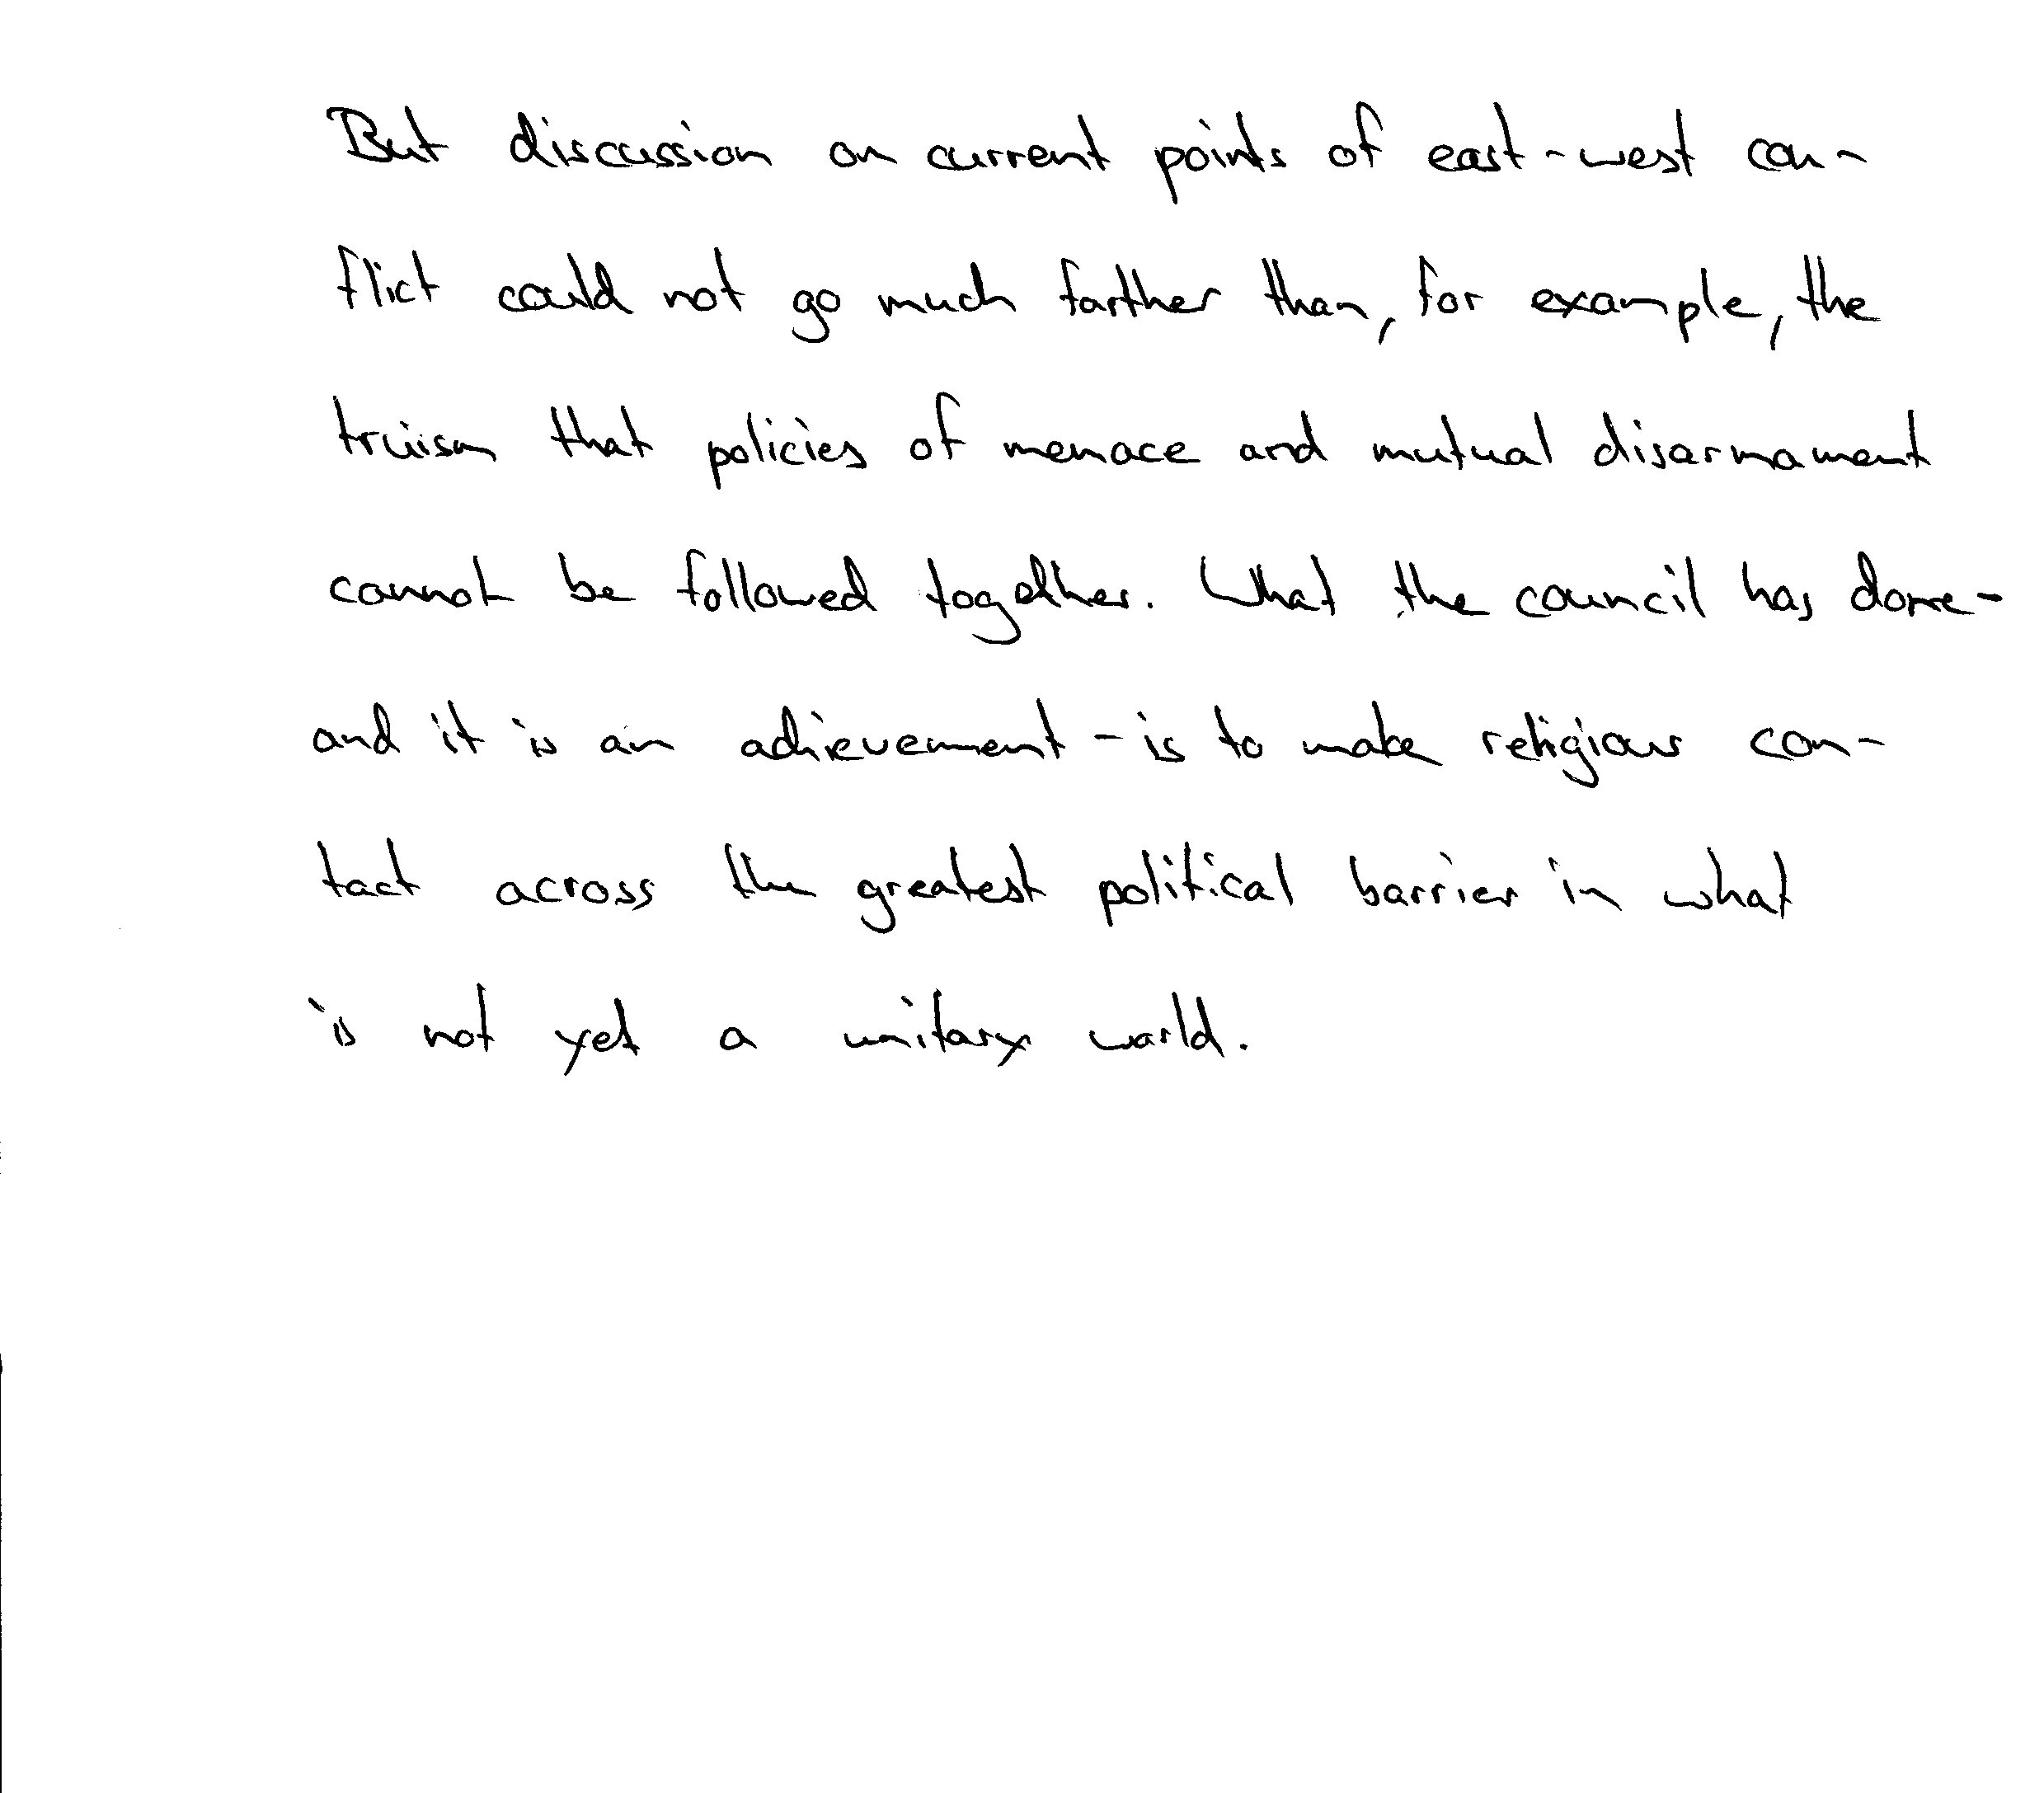 But discussion on current points of east-west con-
flict could not go much farther than, for example, the
truism that policies of menace and mutual disarmament
cannot be followed together. What the council has done-
and it is an achievement - is to make religious con-
tact across the greatest political barrier in what
is not yet a unitary world.